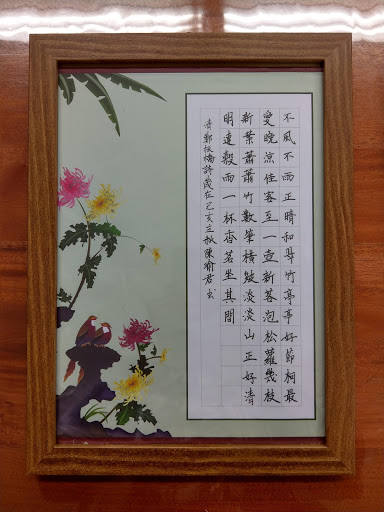 不風不雨正晴和翠竹亭亭好節柯最
愛晚涼佳客至一壺新茗泡松蘿幾枝
新葉蕭蕭竹數筆橫皴淡淡山正好清
明連穀雨一杯香茗坐其間
清鄭板橋詩歲在己亥立秋陳瑜君書